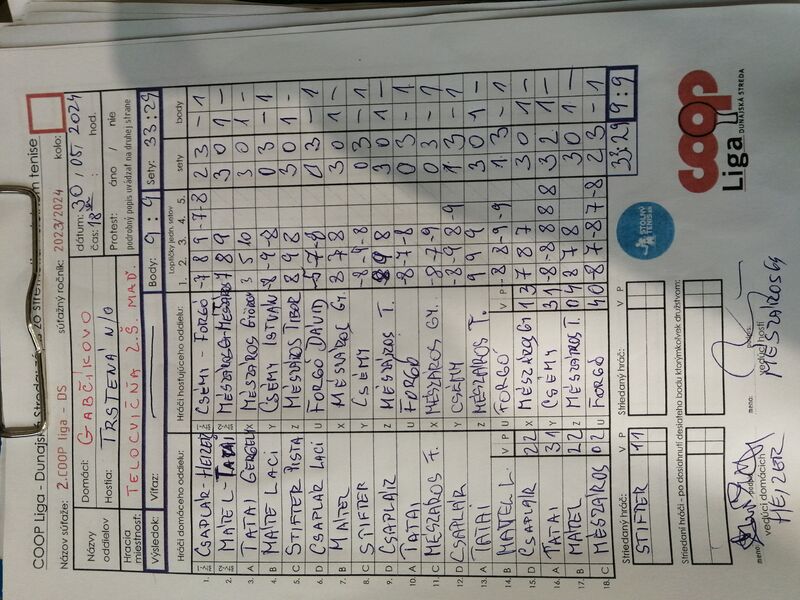 COOP Liga - Dunajská Streda
Názov súťaže: 2.COOP liga - DS súťažný ročník: 2023/2024 kolo:
Názvy oddielov
Domáci: GABČÍKOVO
Hostia: TRSTENÁ N/O
dátum: 30,05,2024
čas: 18 hod.
Hracia miestnosť: TELOCVIČŇA Z.Š. MAĎ.
Protest: áno / nie
podrobný popis uvádzať na druhej strane
Výsledok: Víťaz: Body: 9 : 9 Sety: 33 : 29
Hráči domáceho oddielu Hráči hosťujúceho oddielu Loptičky jedn. setov sety body
1. 2. 3. 4. 5.
1. CSAPLÁR HEIZER CSÉMI - FORGÓ -7 8 9 -7 -8 2 3 - 1
2. MATEL TATAI 7 8 9 3 0 1 -
3. A TATAI GERGELY X MÉSZÁROS GYÖRGY 3 5 10 3 0 1 -
4. B MATE LACI Y CSÉMI ISTVÁN 0 3 - 1
5. C STIFTER PISTA Z MÉSZÁROS TIBOR 8 9 8 3 0 1 -
6. D CSAPLÁR LACI U FORGÓ DÁVID 0 3 - 1
7. B MATEL X MÉSZÁROS GY. 8 7 8 3 0 1 -
8. C STIFTER Y CSÉMY 0 3 - 1
9. D CSAPLÁR Z MÉSZÁROS T. 3 0 1 -
10. A TATAI U FORGÓ -8 -7 -8 0 3 - 1
11. C MÉSZÁROS F. X MÉSZÁROS GY. -8 -7 -9 0 3 - 1
12. D CSAPLÁR Y CSÉMY -8 -9 8 -9 1 3 - 1
13. A TATAI Z MÉSZÁROS T. 9 9 9 3 0 1 -
V P V P
14. B MATEL L. U FORGÓ -8 8 -9 -9 1 3 - 1
15. D CSAPLÁR 22 X MÉSZÁROS GY 13 7 8 7 3 0 1 -
16. A TATAI 31 Y CSÉMY 31 -8 -8 8 8 8 3 2 1 -
17. B MATEL 22 Z MÉSZÁROS T. 04 8 7 8 3 0 1 -
18. C MÉSZÁROS 02 U FORGÓ 40 -8 7 -8 7 -8 2 3 - 1
33:29 9:9
Striedaný hráč: V P Striedaný hráč: V P
STIFTER 11
Striedaní hráči - po dosiahnutí desiateho bodu ktorýmkoľvek družstvom:
STOLNÝ TENIS
COOP
Liga DUNAJSKÁ STREDA
meno
vedúci domácich
HEIZER
meno:
vedúci hostí
MÉSZÁROS GY